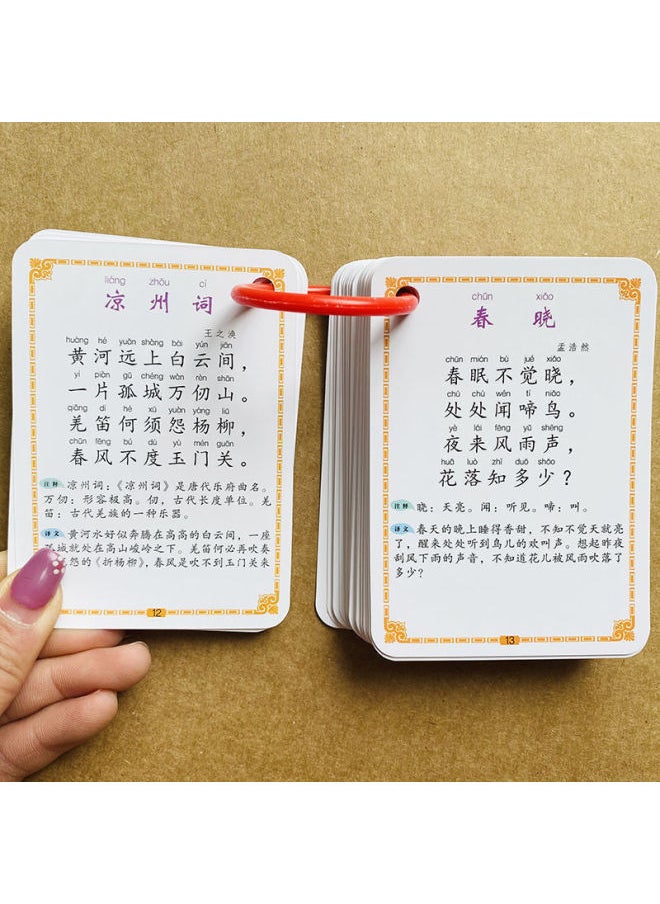 liáng zhōu cí
凉州词
王之涣
huáng hé yuǎn shàng bái yún jiān
黄河远上白云间，
yí piàn gū chéng wàn rèn shān
一片孤城万仞山。
qiāng dí hé xū yuàn yáng liǔ
羌笛何须怨杨柳，
chūn fēng bú dù yù mén guān
春风不度玉门关。
注释 凉州词：《凉州词》是唐代乐府曲名。
万仞：形容极高。仞，古代长度单位。羌
笛：古代羌族的一种乐器。
译文 黄河水好似奔腾在高高的白云间，一座
孤城就处在高山峻岭之下。羌笛何必再吹奏
怨的《折杨柳》，春风是吹不到玉门关来
12
chūn xiǎo
春晓
孟浩然
chūn mián bù jué xiǎo
春眠不觉晓，
chù chù wén tí niǎo
处处闻啼鸟。
yè lái fēng yǔ shēng
夜来风雨声，
huā luò zhī duō shǎo
花落知多少？
注释 晓：天亮。闻：听见。啼：叫。
译文 春天的晚上睡得香甜，不知不觉天就亮
了，醒来处处听到鸟儿的欢叫声。想起昨夜
刮风下雨的声音，不知道花儿被风雨吹落了
多少？
13